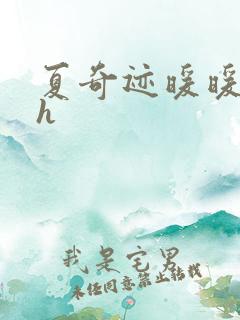 夏奇迹暖暖
h
我是宅男
未经同意禁止转载